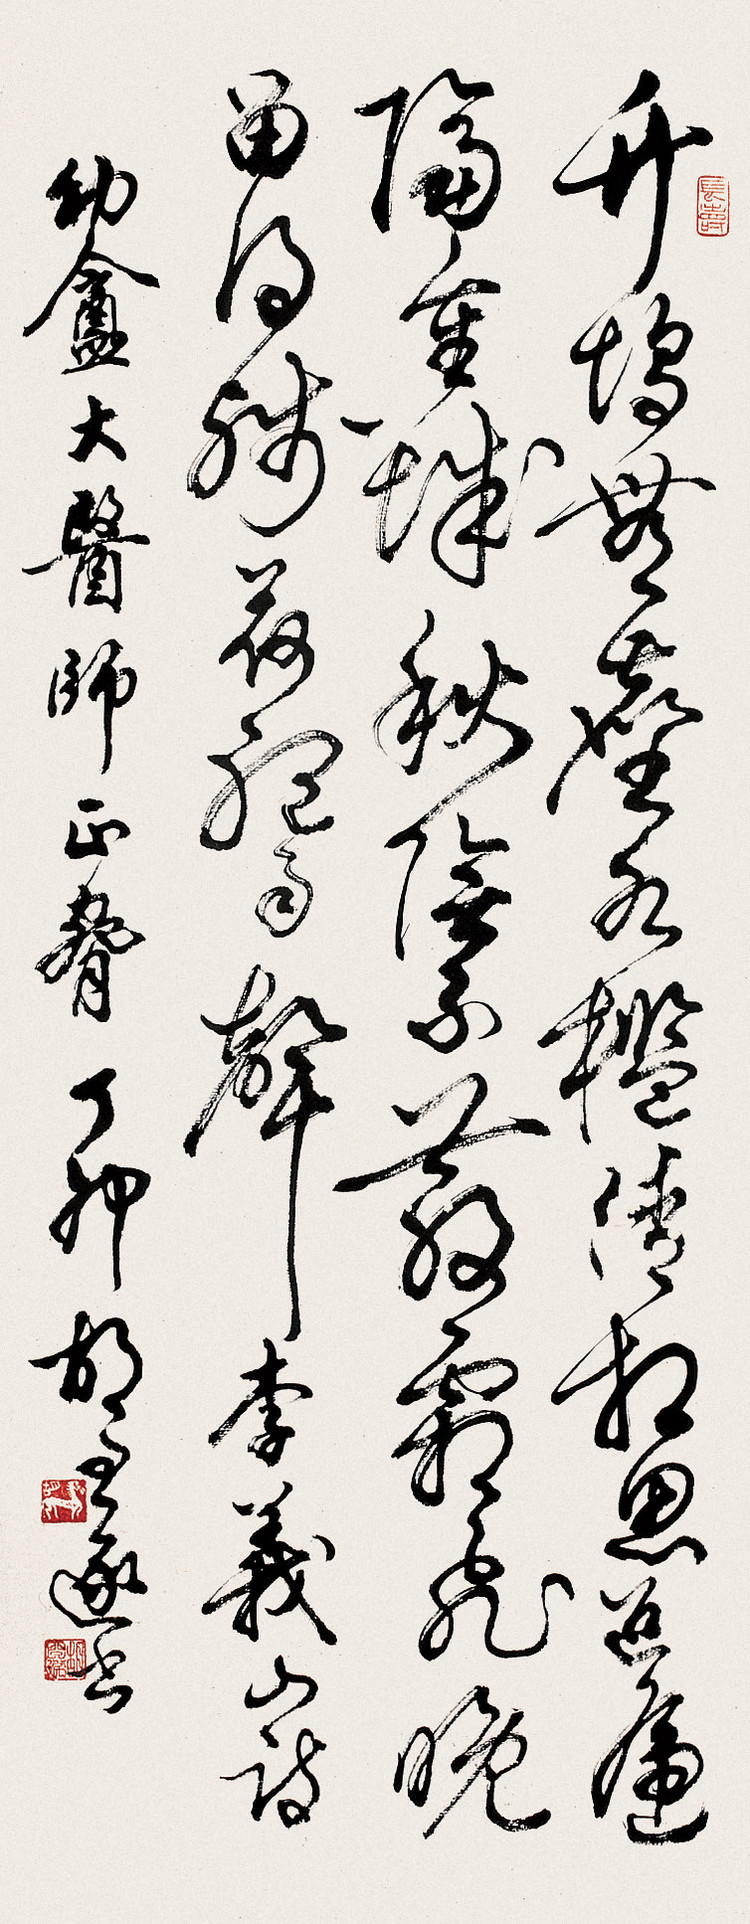 竹塢無塵水檻清相思迢遞
隔重城秋陰不散霜飛晚
留得殘荷聽雨聲李義山詩
幼盦大醫師正 丁卯胡 遂書